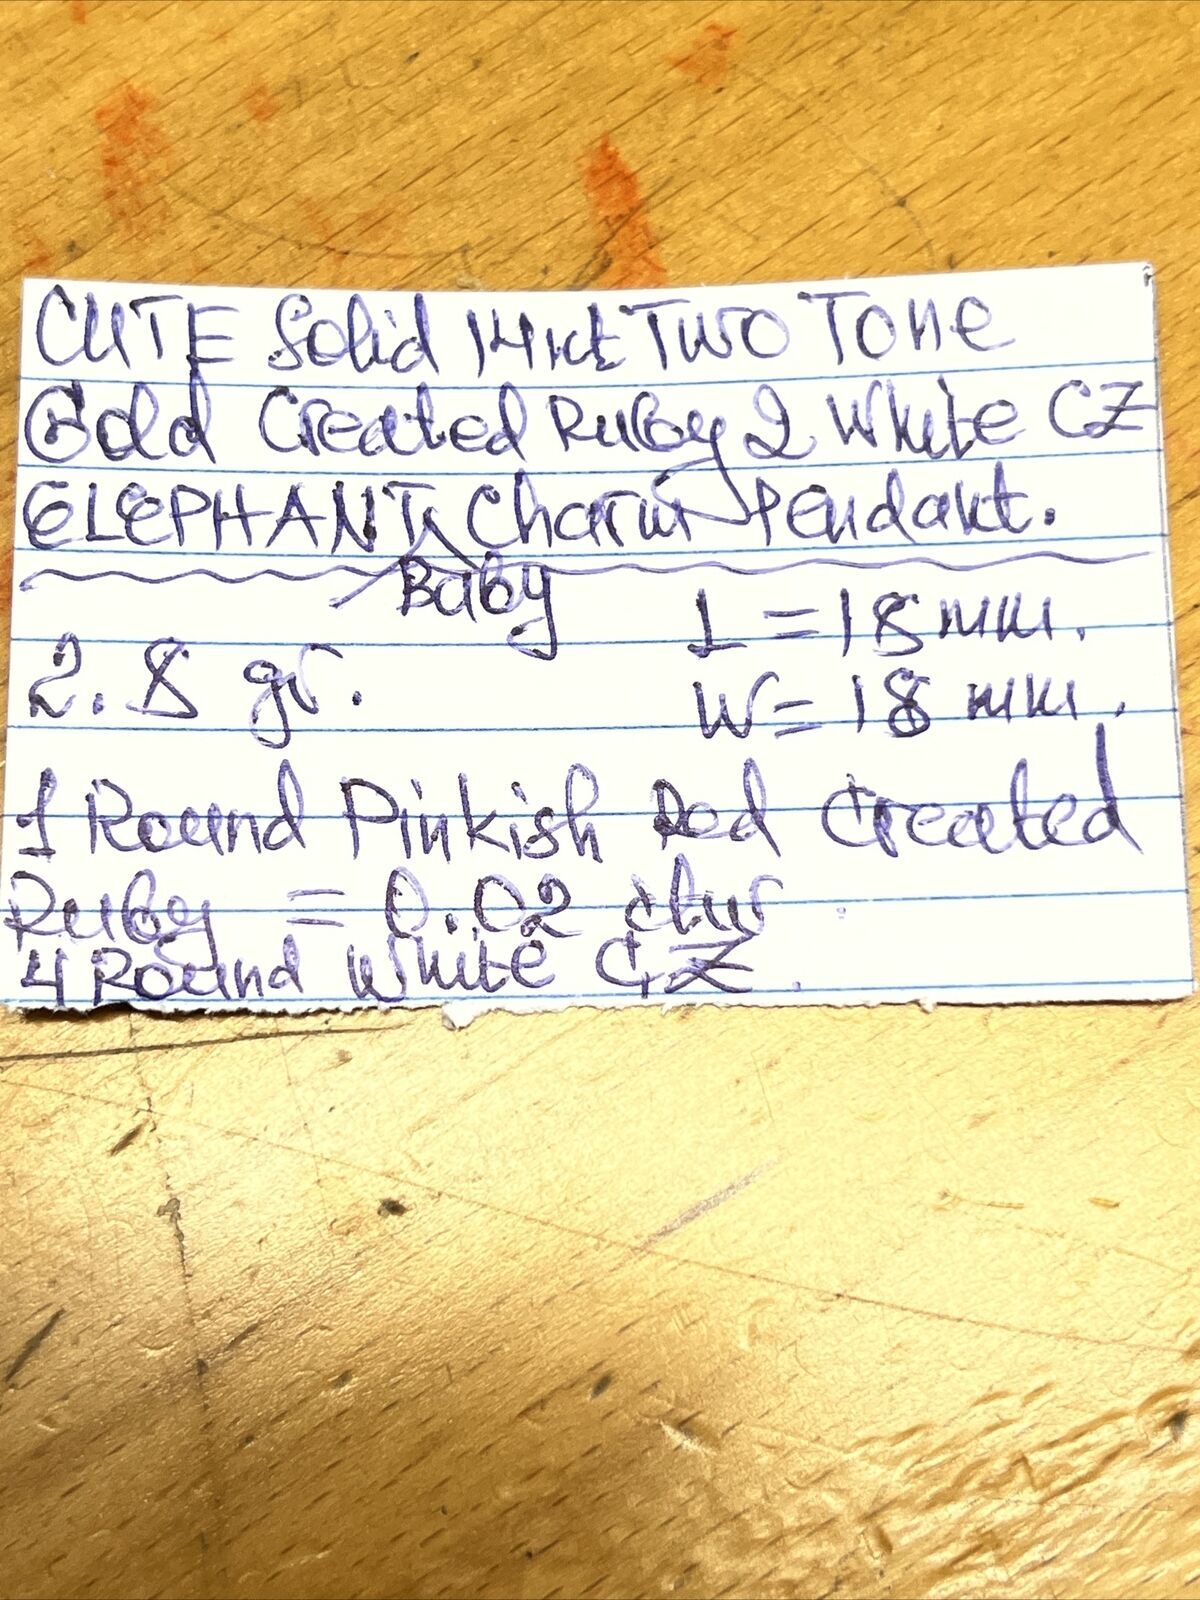 CUTE Solid 14kt Two Tone
Gold Created Ruby 2 White CZ
ELEPHANT Charm Pendant.
Baby
L = 18 mm.
2.8 gr.
W = 18 mm.
1 Round Pinkish Red Created
Ruby = 0.02 ctw
4 Round White CZ.